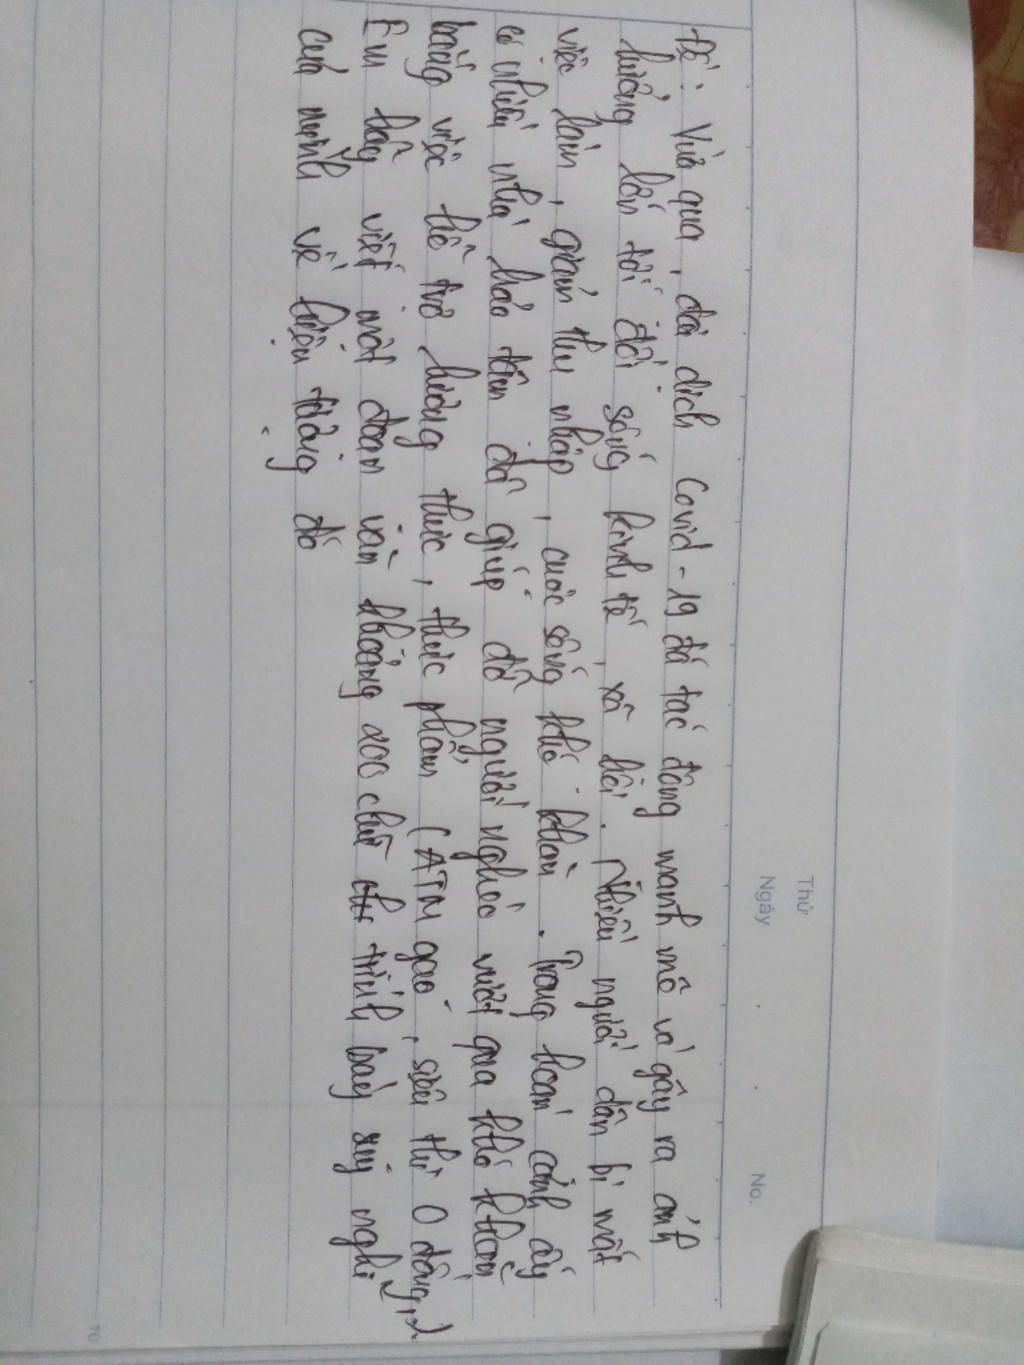 Thứ
Ngày
No.
Đề: Vừa qua, đại dịch Covid-19 đã tác động mạnh mẽ và gây ra ảnh
hưởng lớn tới đời sống kinh tế, xã hội. Nhiều người dân bị mất
việc làm, giảm thu nhập, cuộc sống khó khăn. Trong hoàn cảnh ấy
có nhiều nhà hảo tâm đã giúp đỡ người nghèo vượt qua khó khăn
bằng việc hỗ trợ lương thực, thực phẩm (ATM gạo, siêu thị 0 đồng,
Em hãy viết một đoạn văn khoảng 200 chữ trình bày suy nghĩ
của mình về hiện tượng đó